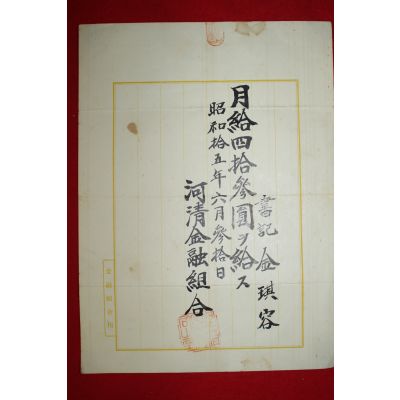 書記 金琪容
月給四拾參圓ヲ給ス
昭和拾五年六月參拾日
河清金融組合